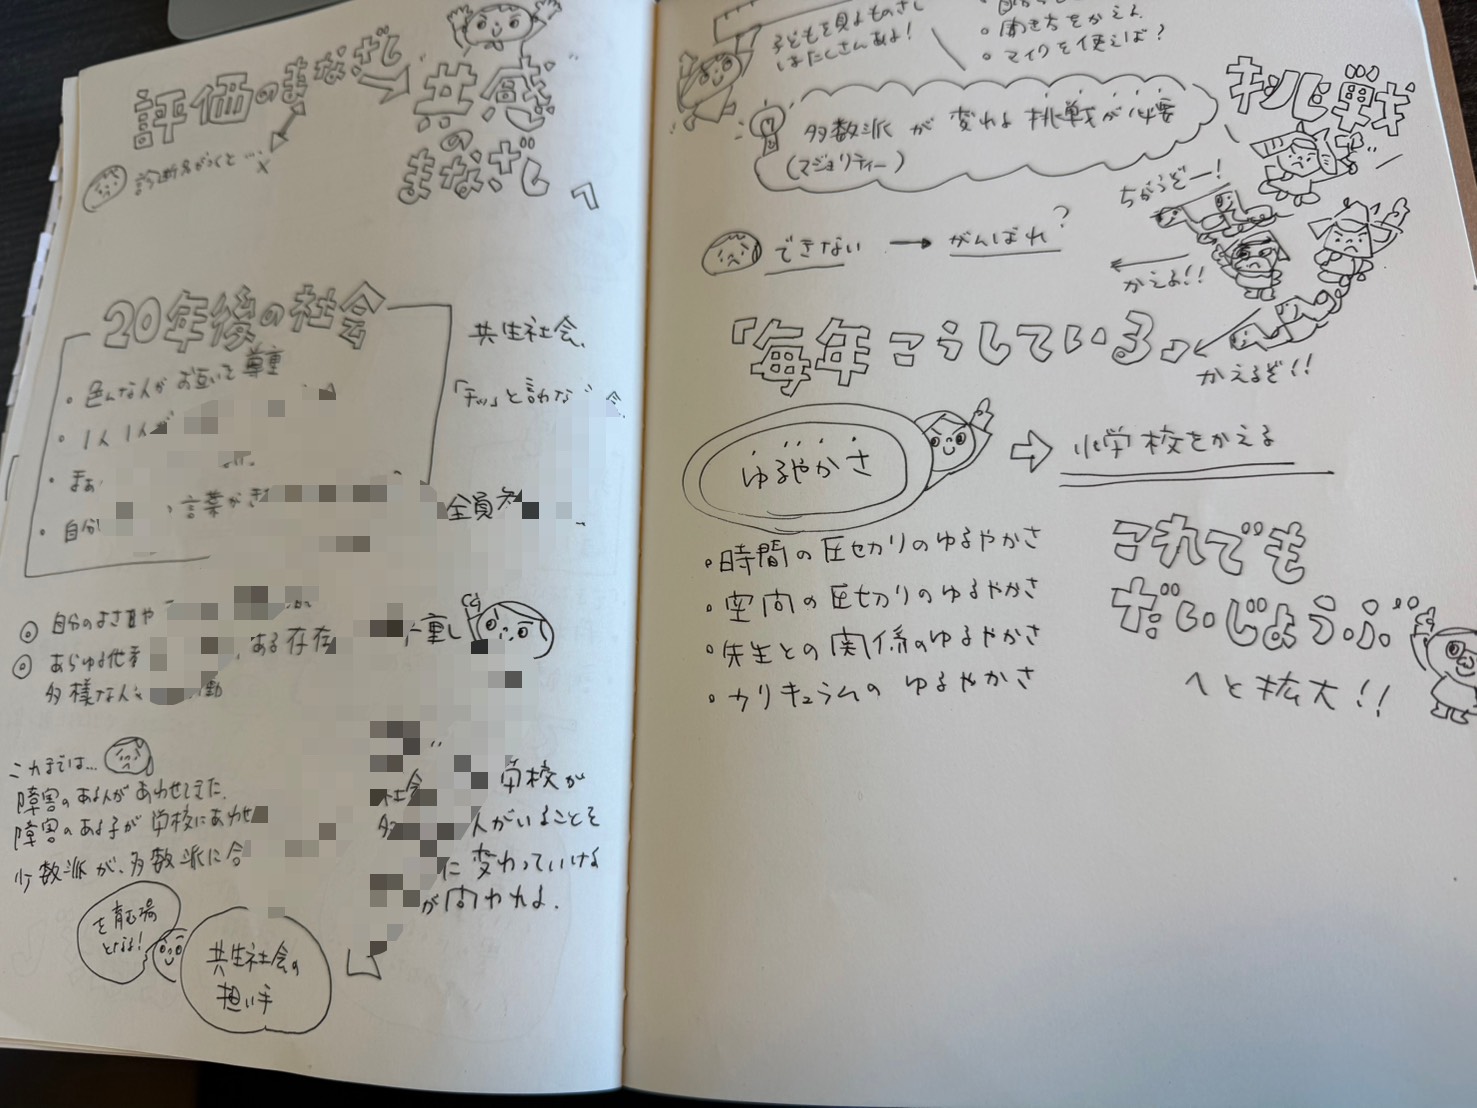 評価のまなざし
共感
の
まなざし
へ
診断名がつくと…
20年後の社会
・色んな人がお互いを尊重
・1人1人が
・まぁ
・自分
言葉がき
共生社会
「チッ」と言わな
全員
◎自分のよさ
◎あらゆる他者
ある存在
多様な人
重し
これまでは…
障害のある人があわせてきた.
障害のある子が学校にあわせ
少数派が、多数派に合
社会
学校が
人がいることを
に変わっていける
が問われる.
を育む場
となる!
共生社会の
担い手
子どもを見るものさし
はたくさんあるよ!
・聞き方をかえる
・マイクを使えば?
多数派が変わる挑戦が必要
(マジョリティー)
挑戦
ちがうぞー!
できない → がんばれ?
かえる!!
「毎年こうしている」
かえるぞ!!
ゆるやかさ
⇨ 小学校をかえる
・時間の区切りのゆるやかさ
・空間の区切りのゆるやかさ
・先生との関係のゆるやかさ
・カリキュラムのゆるやかさ
これでも
だいじょうぶ
へと拡大!!